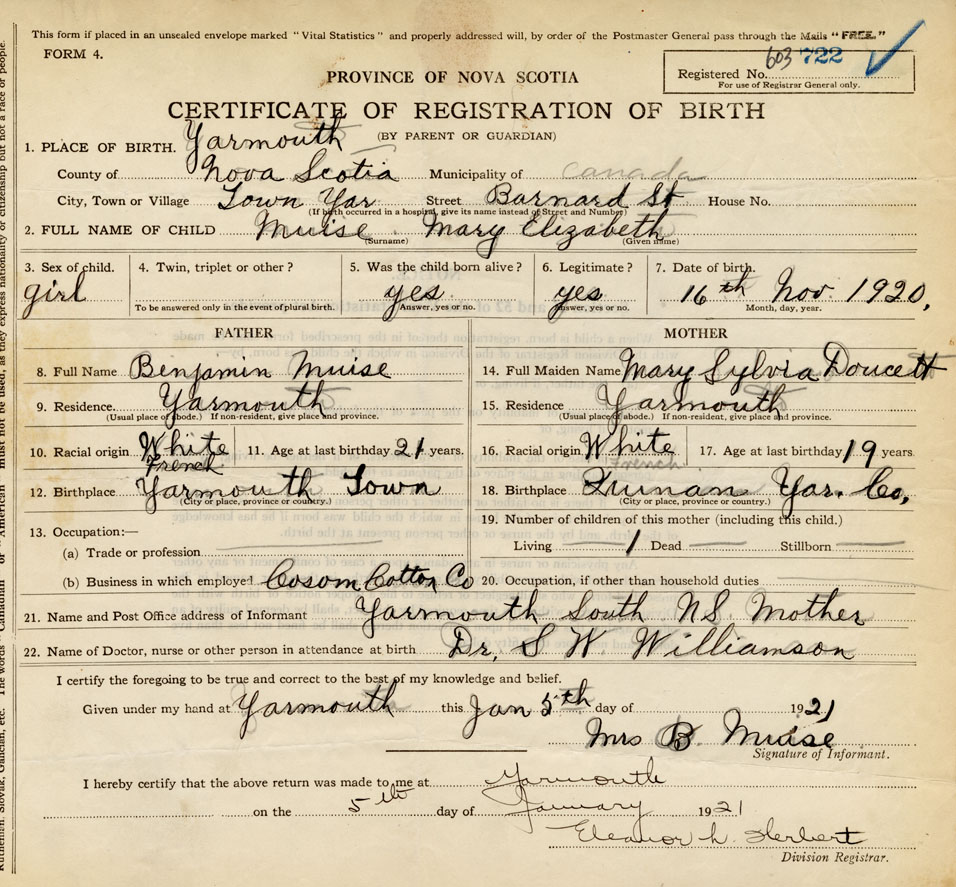 This form if placed in an unsealed envelope marked "Vital Statistics" and properly addressed will, by order of the Postmaster General pass through the Mails "FREE."
FORM 4.
603 722
PROVINCE OF NOVA SCOTIA
Registered No.
For use of Registrar General only.
CERTIFICATE OF REGISTRATION OF BIRTH
(BY PARENT OR GUARDIAN)
1. PLACE OF BIRTH. Yarmouth
County of Nova Scotia Municipality of Canada
City, Town or Village Town Yar Street Barnard St House No.
(If birth occurred in a hospital, give its name instead of Street and Number)
2. FULL NAME OF CHILD Muise Mary Elizabeth
(Surname) (Given name)
3. Sex of child. 4. Twin, triplet or other? 5. Was the child born alive? 6. Legitimate? 7. Date of birth.
girl yes. yes 16th Nov. 1920,
To be answered only in the event of plural birth. Answer, yes or no. Answer, yes or no. Month, day, year.
FATHER MOTHER
8. Full Name Benjamin Muise 14. Full Maiden Name Mary Sylvia Doucett
9. Residence. Yarmouth 15. Residence Yarmouth
(Usual place of abode.) If non-resident, give place and province. (Usual place of abode.) If non-resident, give place and province.
10. Racial origin White 11. Age at last birthday 21 years. 16. Racial origin White 17. Age at last birthday 19 years
French French
12. Birthplace Yarmouth Town 18. Birthplace Quinan Yar. Co,
(City or place, province or country.) (City or place, province or country.)
13. Occupation:— 19. Number of children of this mother (including this child.)
(a) Trade or profession Living 1 Dead Stillborn
(b) Business in which employed Cosom Cotton Co 20. Occupation, if other than household duties
21. Name and Post Office address of Informant Yarmouth South N.S. Mother
22. Name of Doctor, nurse or other person in attendance at birth Dr, S W. Williamson
I certify the foregoing to be true and correct to the best of my knowledge and belief.
Given under my hand at Yarmouth this Jan 5th day of 1921
Mrs B. Muise
Signature of Informant.
I hereby certify that the above return was made to me at Yarmouth
on the 5th day of January 1921
Eleanor L. Herbert
Division Registrar.
Ruthenian, Slovak, Galician, etc. The words Canadian or American must not be used, as they express nationality or citizenship but not a race or people.